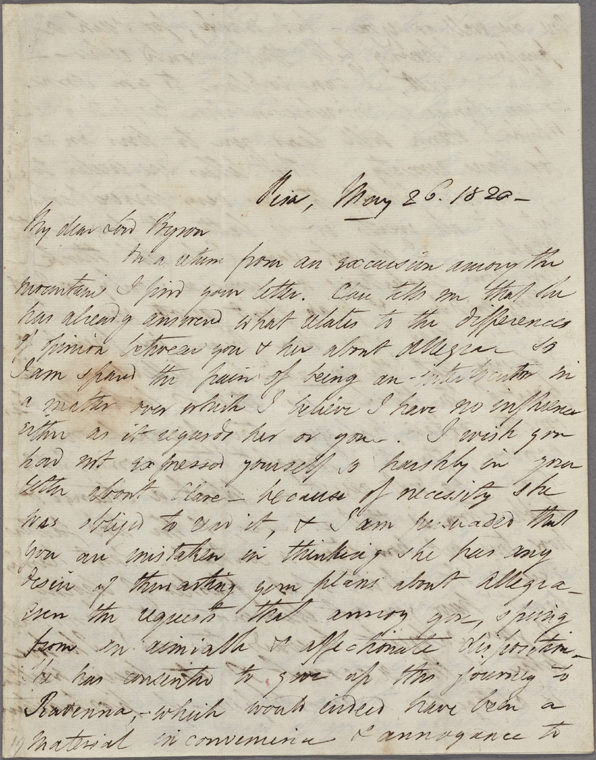 Pisa, May 26. 1820 —
My dear Lord Byron
On a return from an excursion among the
mountains I find your letter. Clare tells me that she
has already answered what relates to the differences
of opinion between you & her about Allegra so
I am spared the pain of being an interlocutor in
a matter over which I believe I have no influence
either as it regards her or you —. I wish you
had not expressed yourself so harshly in your
letter about Clare — because of necessity she
was obliged to read it, & I am persuaded that
you are mistaken in thinking she has any
desire of thwarting your plans about Allegra —
even the requests that annoy you, spring
from an amiable & affectionate disposition —
She has consented to give up this journey to
Ravenna, — which would indeed have been a
material inconvenience & annoyance to